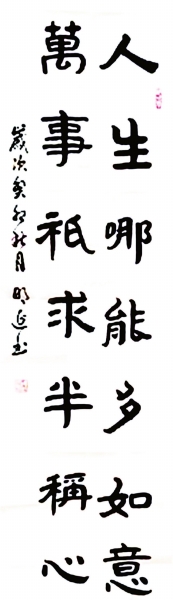 人生哪能多如意
萬事祇求半稱心
歲次癸卯秋月明延書